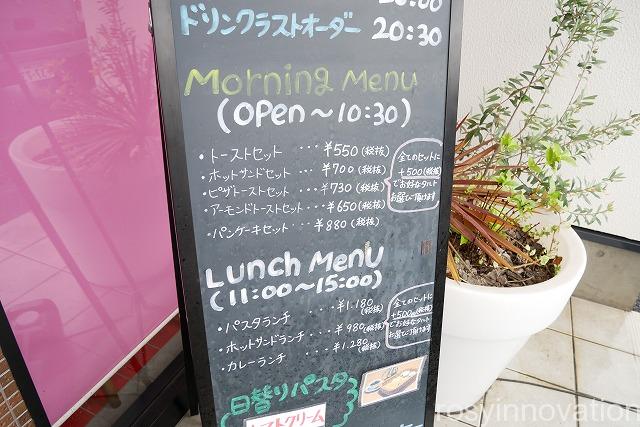 ドリンクラストオーダー 20:30
Morning Menu
(OPEN～10:30)
・トーストセット ・・・ ¥550(税抜)
・ホットサンドセット ・・・ ¥700(税抜)
・ピザトーストセット ・・・ ¥730(税抜)
・アーモンドトーストセット ・・・ ¥650(税抜)
・パンケーキセット ・・・ ¥880(税抜)
全てのセットに
+500(税抜)
でお好なタルト
お選び頂けます
Lunch Menu
(11:00～15:00)
・パスタランチ ・・・ ¥1.180(税抜)
・ホットサンドランチ ・・・ ¥980(税抜)
・カレーランチ ・・・ ¥1.280(税抜)
全てのセットに
+500(税抜)
でお好なタルト
お選び頂けます
日替りパスタ
rosyinnovation